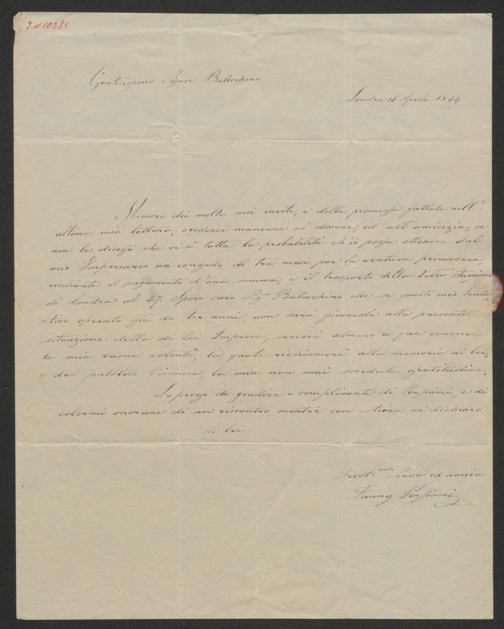 Gentilissimo Signor Balochino
Londra 16 Aprile 1844
Memore dei molti suoi inviti, e della promessa fattale nell'
ultima mia lettera, crederei mancare al dovere, ed all'amicizia, se
non le dicessi che vi è tutta la probabilità ch'io possa ottenere dal
mio Impresario un congedo di tre mesi per la ventura primavera,
mediante il pagamento d'una somma, e il trasporto della stagione
di Londra al 47. Spero caro Sig.r Balochino che se questo mio tenta-
tivo operato già da tre anni, non sarà giovevole alla presente
situazione della di lei Impresa, servirà almeno a far conoscere
la mia buona volontà, la quale richiamerà alla memoria di lei,
e del pubblico Viennese, la mia non mai scordata gratitudine.
La prego di gradire i complimenti di Persiani, e di
volermi onorare di un riscontro, mentre con stima mi dichiaro
di lei
Devot.ma Serva ed amica
Fanny Persiani